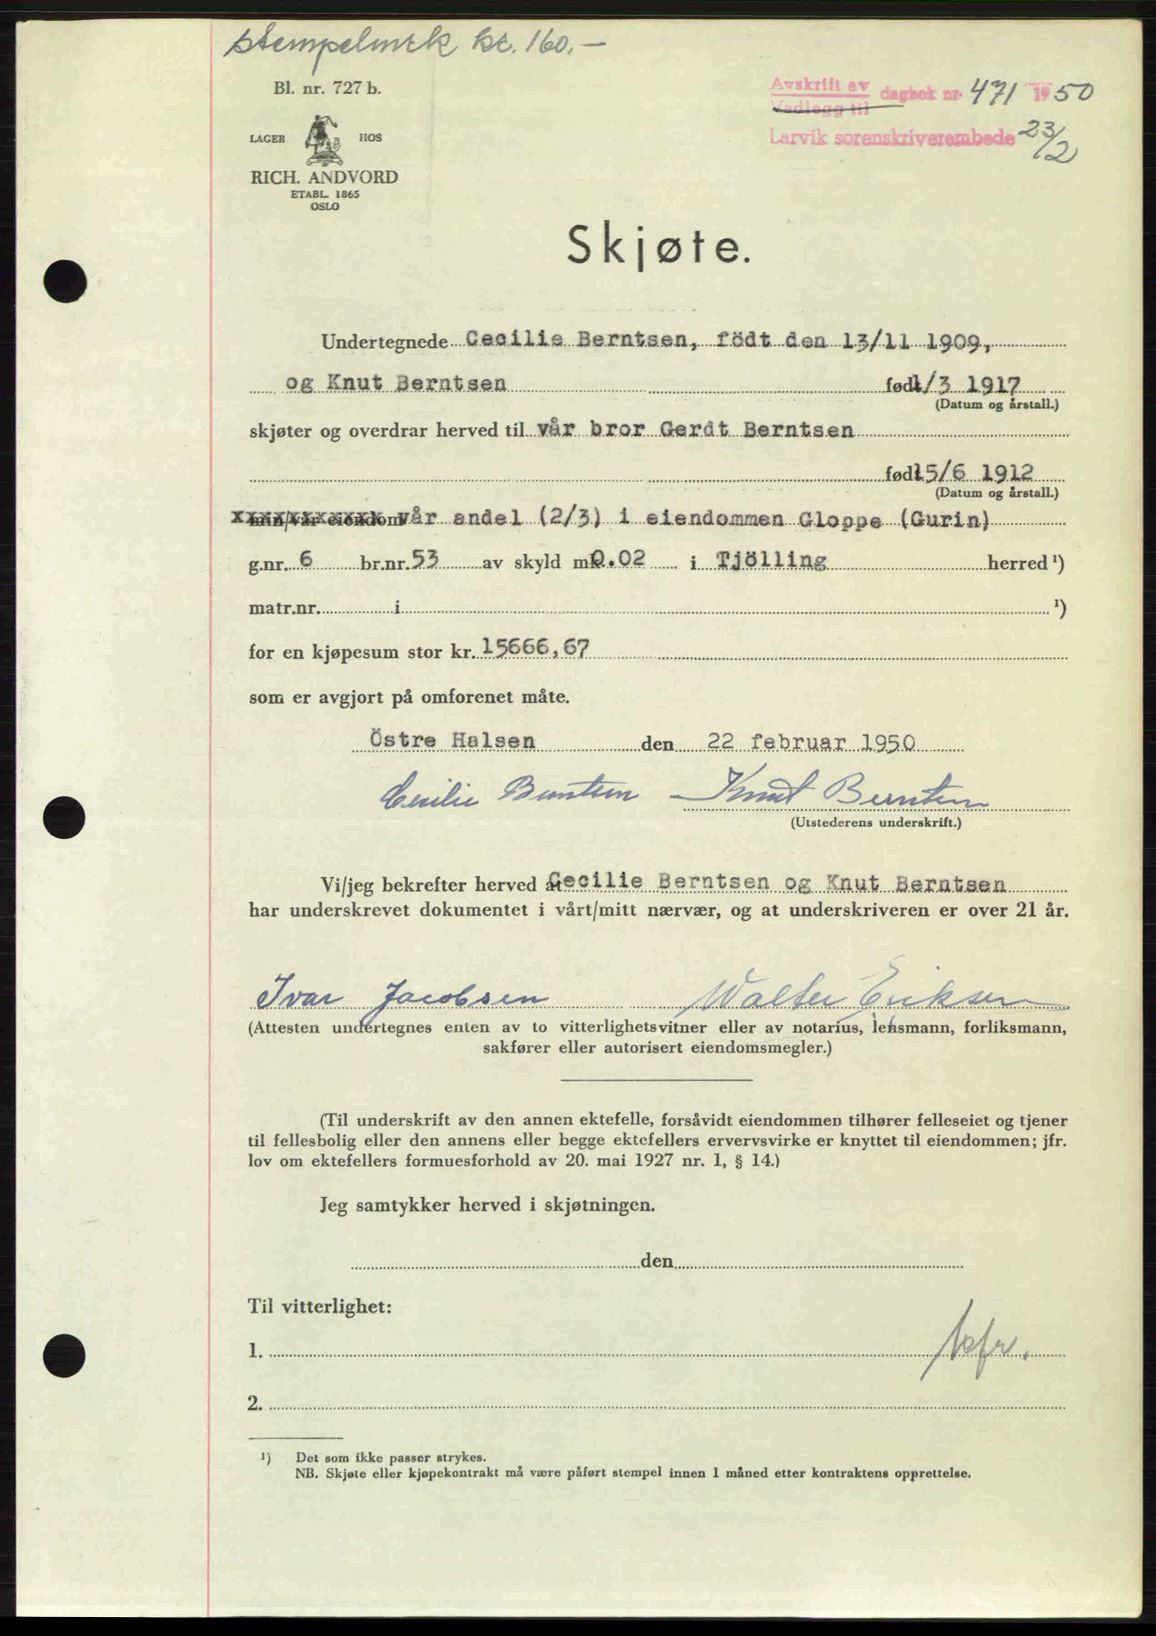 Stempelmerk kr. 160.-
Bl. nr. 727 b.
Avskrift av dagbok nr. 471 1950
Vedlegg til
Larvik sorenskriverembede 23/2
LAGER HOS
RICH. ANDVORD
ETABL. 1865
OSLO
Skjøte.
Undertegnede Cecilie Berntsen, födt den 13/11 1909,
og Knut Berntsen født 1/3 1917
(Datum og årstall.)
skjøter og overdrar herved til vår bror Gerdt Berntsen
født 15/6 1912
(Datum og årstall.)
min/vår eiendom vår andel (2/3) i eiendommen Gloppe (Gurin)
g.nr. 6 br.nr. 53 av skyld mk. 0.02 i Tjölling herred ¹)
matr.nr. i ¹)
for en kjøpesum stor kr. 15666,67
som er avgjort på omforenet måte.
Östre Halsen den 22 februar 1950
Cecilie Berntsen Knut Berntsen
(Utstederens underskrift.)
Vi/jeg bekrefter herved at Cecilie Berntsen og Knut Berntsen
har underskrevet dokumentet i vårt/mitt nærvær, og at underskriveren er over 21 år.
Ivar Jacobsen Walter Eriksen
(Attesten undertegnes enten av to vitterlighetsvitner eller av notarius, lensmann, forliksmann,
sakfører eller autorisert eiendomsmegler.)
(Til underskrift av den annen ektefelle, forsåvidt eiendommen tilhører felleseiet og tjener
til fellesbolig eller den annens eller begge ektefellers ervervsvirke er knyttet til eiendommen; jfr.
lov om ektefellers formuesforhold av 20. mai 1927 nr. 1, § 14.)
Jeg samtykker herved i skjøtningen.
den
Til vitterlighet:
1.
2.
¹) Det som ikke passer strykes.
NB. Skjøte eller kjøpekontrakt må være påført stempel innen 1 måned etter kontraktens opprettelse.